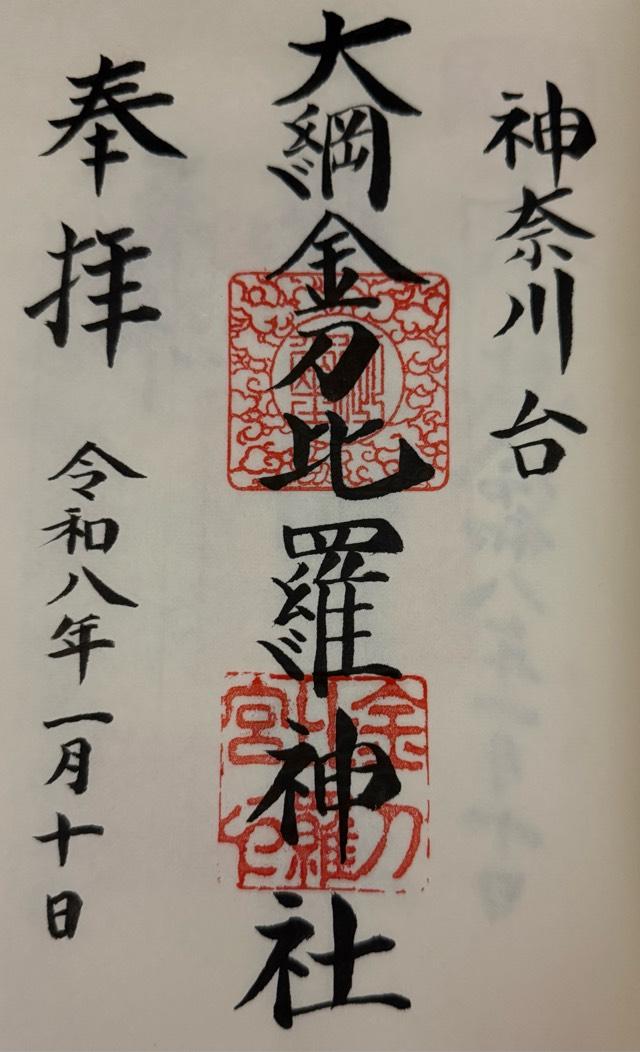 神奈川台
大綱金刀比羅神社
奉拝
令和八年一月十日
金刀
比羅
宮印